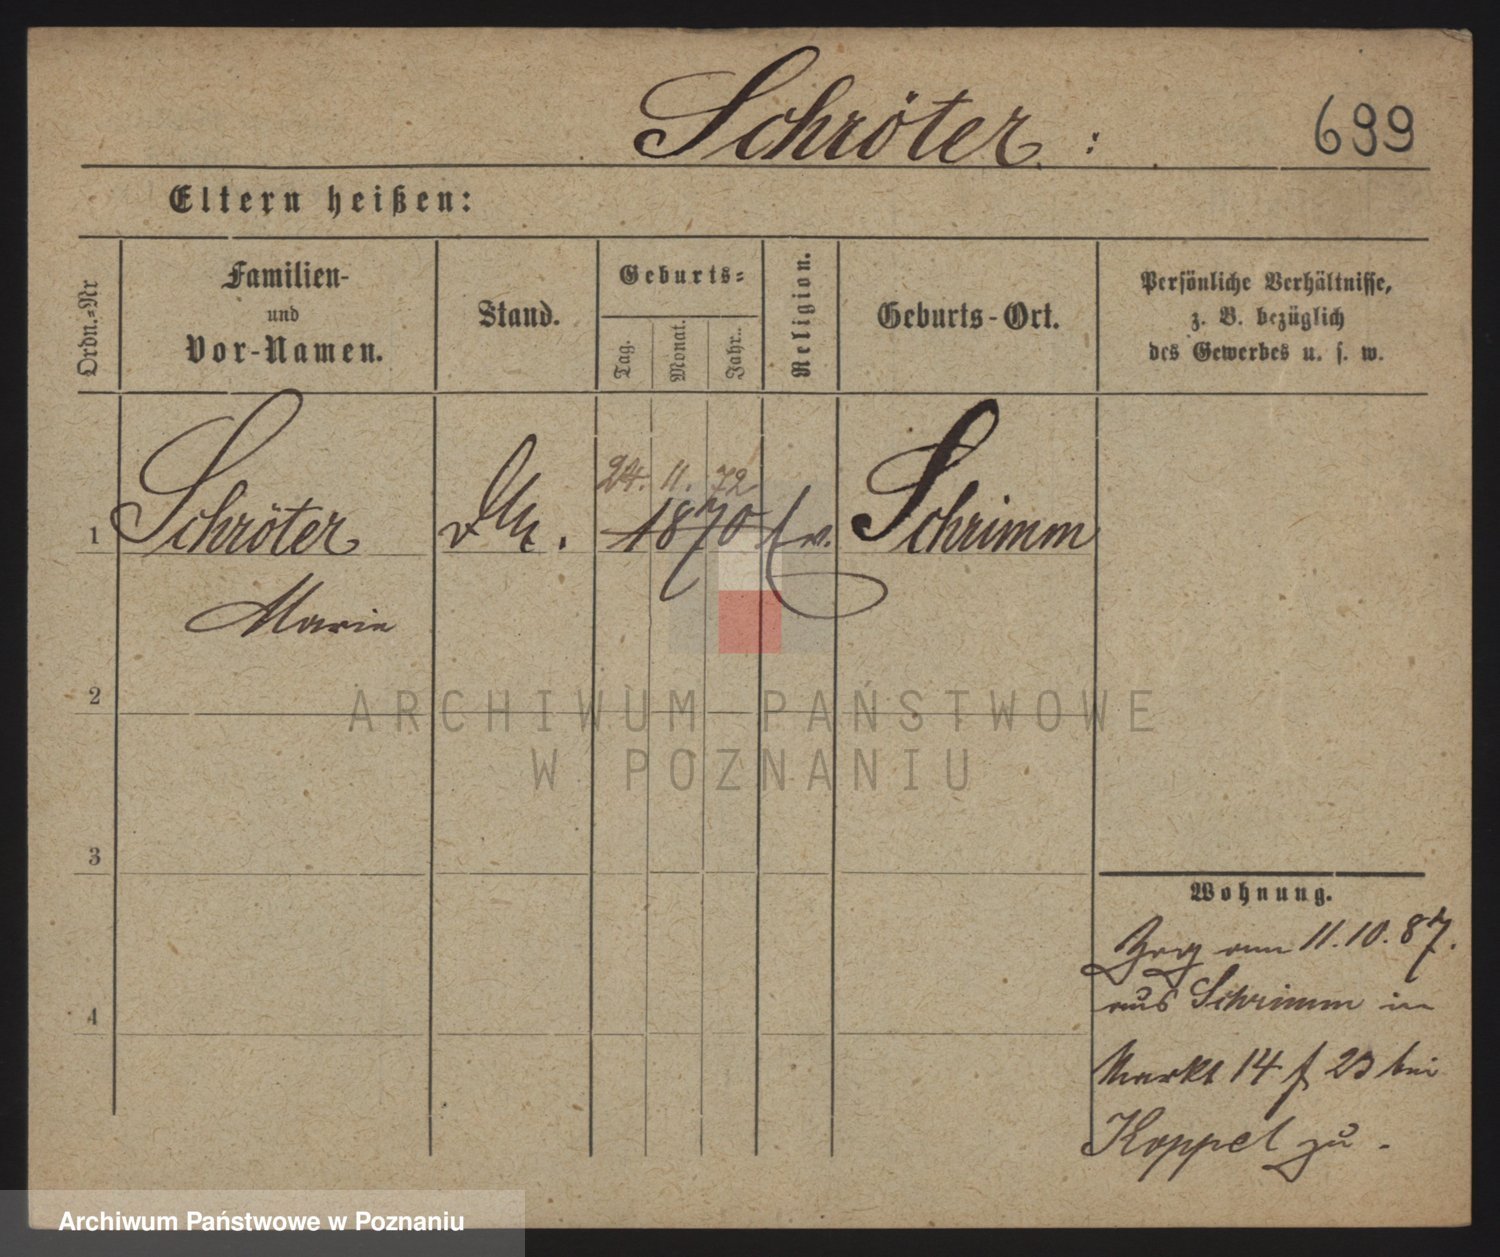 Schröter :
699
Eltern heißen:
Ordn.=Nr
Familien-
und
Vor-Namen.
Stand.
Geburts=
Tag.
Monat.
Jahr.
Religion.
Geburts-Ort.
Persönliche Verhältnisse,
z. B. bezüglich
des Gewerbes u. s. w.
24. 11. 72
1 Schröter 1870 ev. Schrimm
Marie
2
ARCHIWUM PAŃSTWOWE
W POZNANIU
3
Wohnung.
Zog am 11.10.87.
aus Schrimm in
4
Markt 14 f 23 bei
Koppel zu.
Archiwum Państwowe w Poznaniu